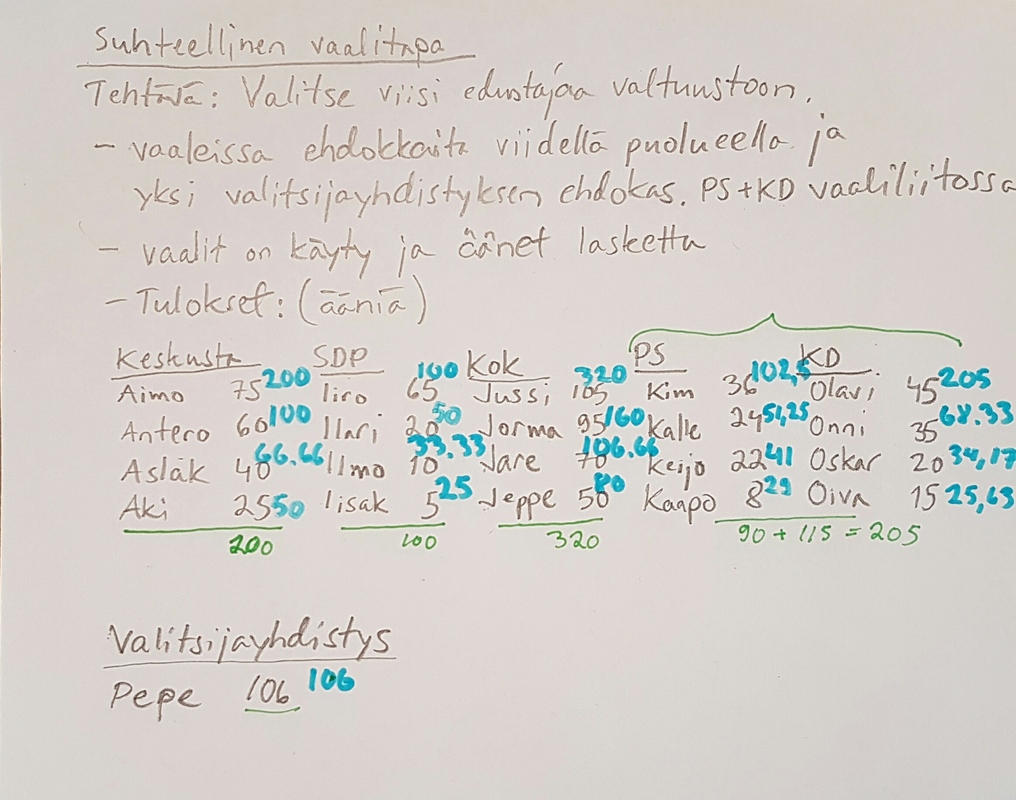 Suhteellinen vaalitapa
Tehtävä: Valitse viisi edustajaa valtuustoon.
- vaaleissa ehdokkaita viidellä puolueella ja
yksi valitsijayhdistyksen ehdokas. PS+KD vaaliliitossa
- vaalit on käyty ja äänet laskettu
- Tulokset: (ääniä)
Keskusta SDP Kok PS KD
Aimo 75 200 Iiro 65 100 Jussi 105 320 Kim 36 102,5 Olavi 45 205
Antero 60 100 Ilari 20 50 Jorma 95 160 Kalle 24 51,25 Onni 35 68.33
Aslak 40 66.66 Ilmo 10 33.33 Jare 70 106.66 Keijo 22 41 Oskar 20 34,17
Aki 25 50 Iisak 5 25 Jeppe 50 80 Kaapo 8 29 Oiva 15 25,63
200 100 320 90 + 115 = 205
Valitsijayhdistys
Pepe 106 106